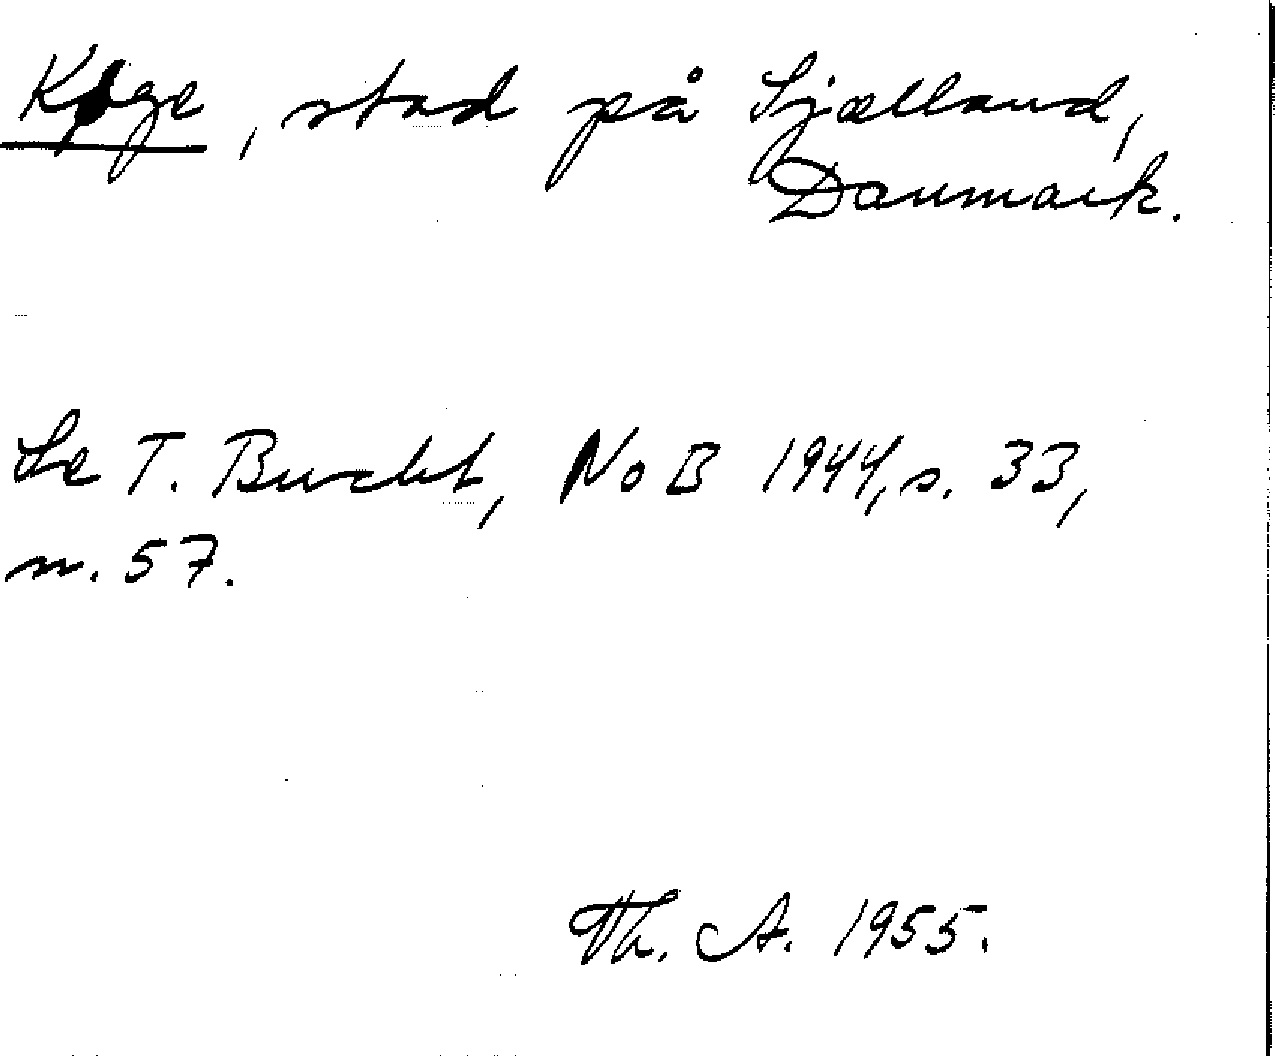 Køge, stad på Sjælland,
Danmark.
Se T. Bucht, NoB 1944, s. 33,
n. 57.
Th. A. 1955.